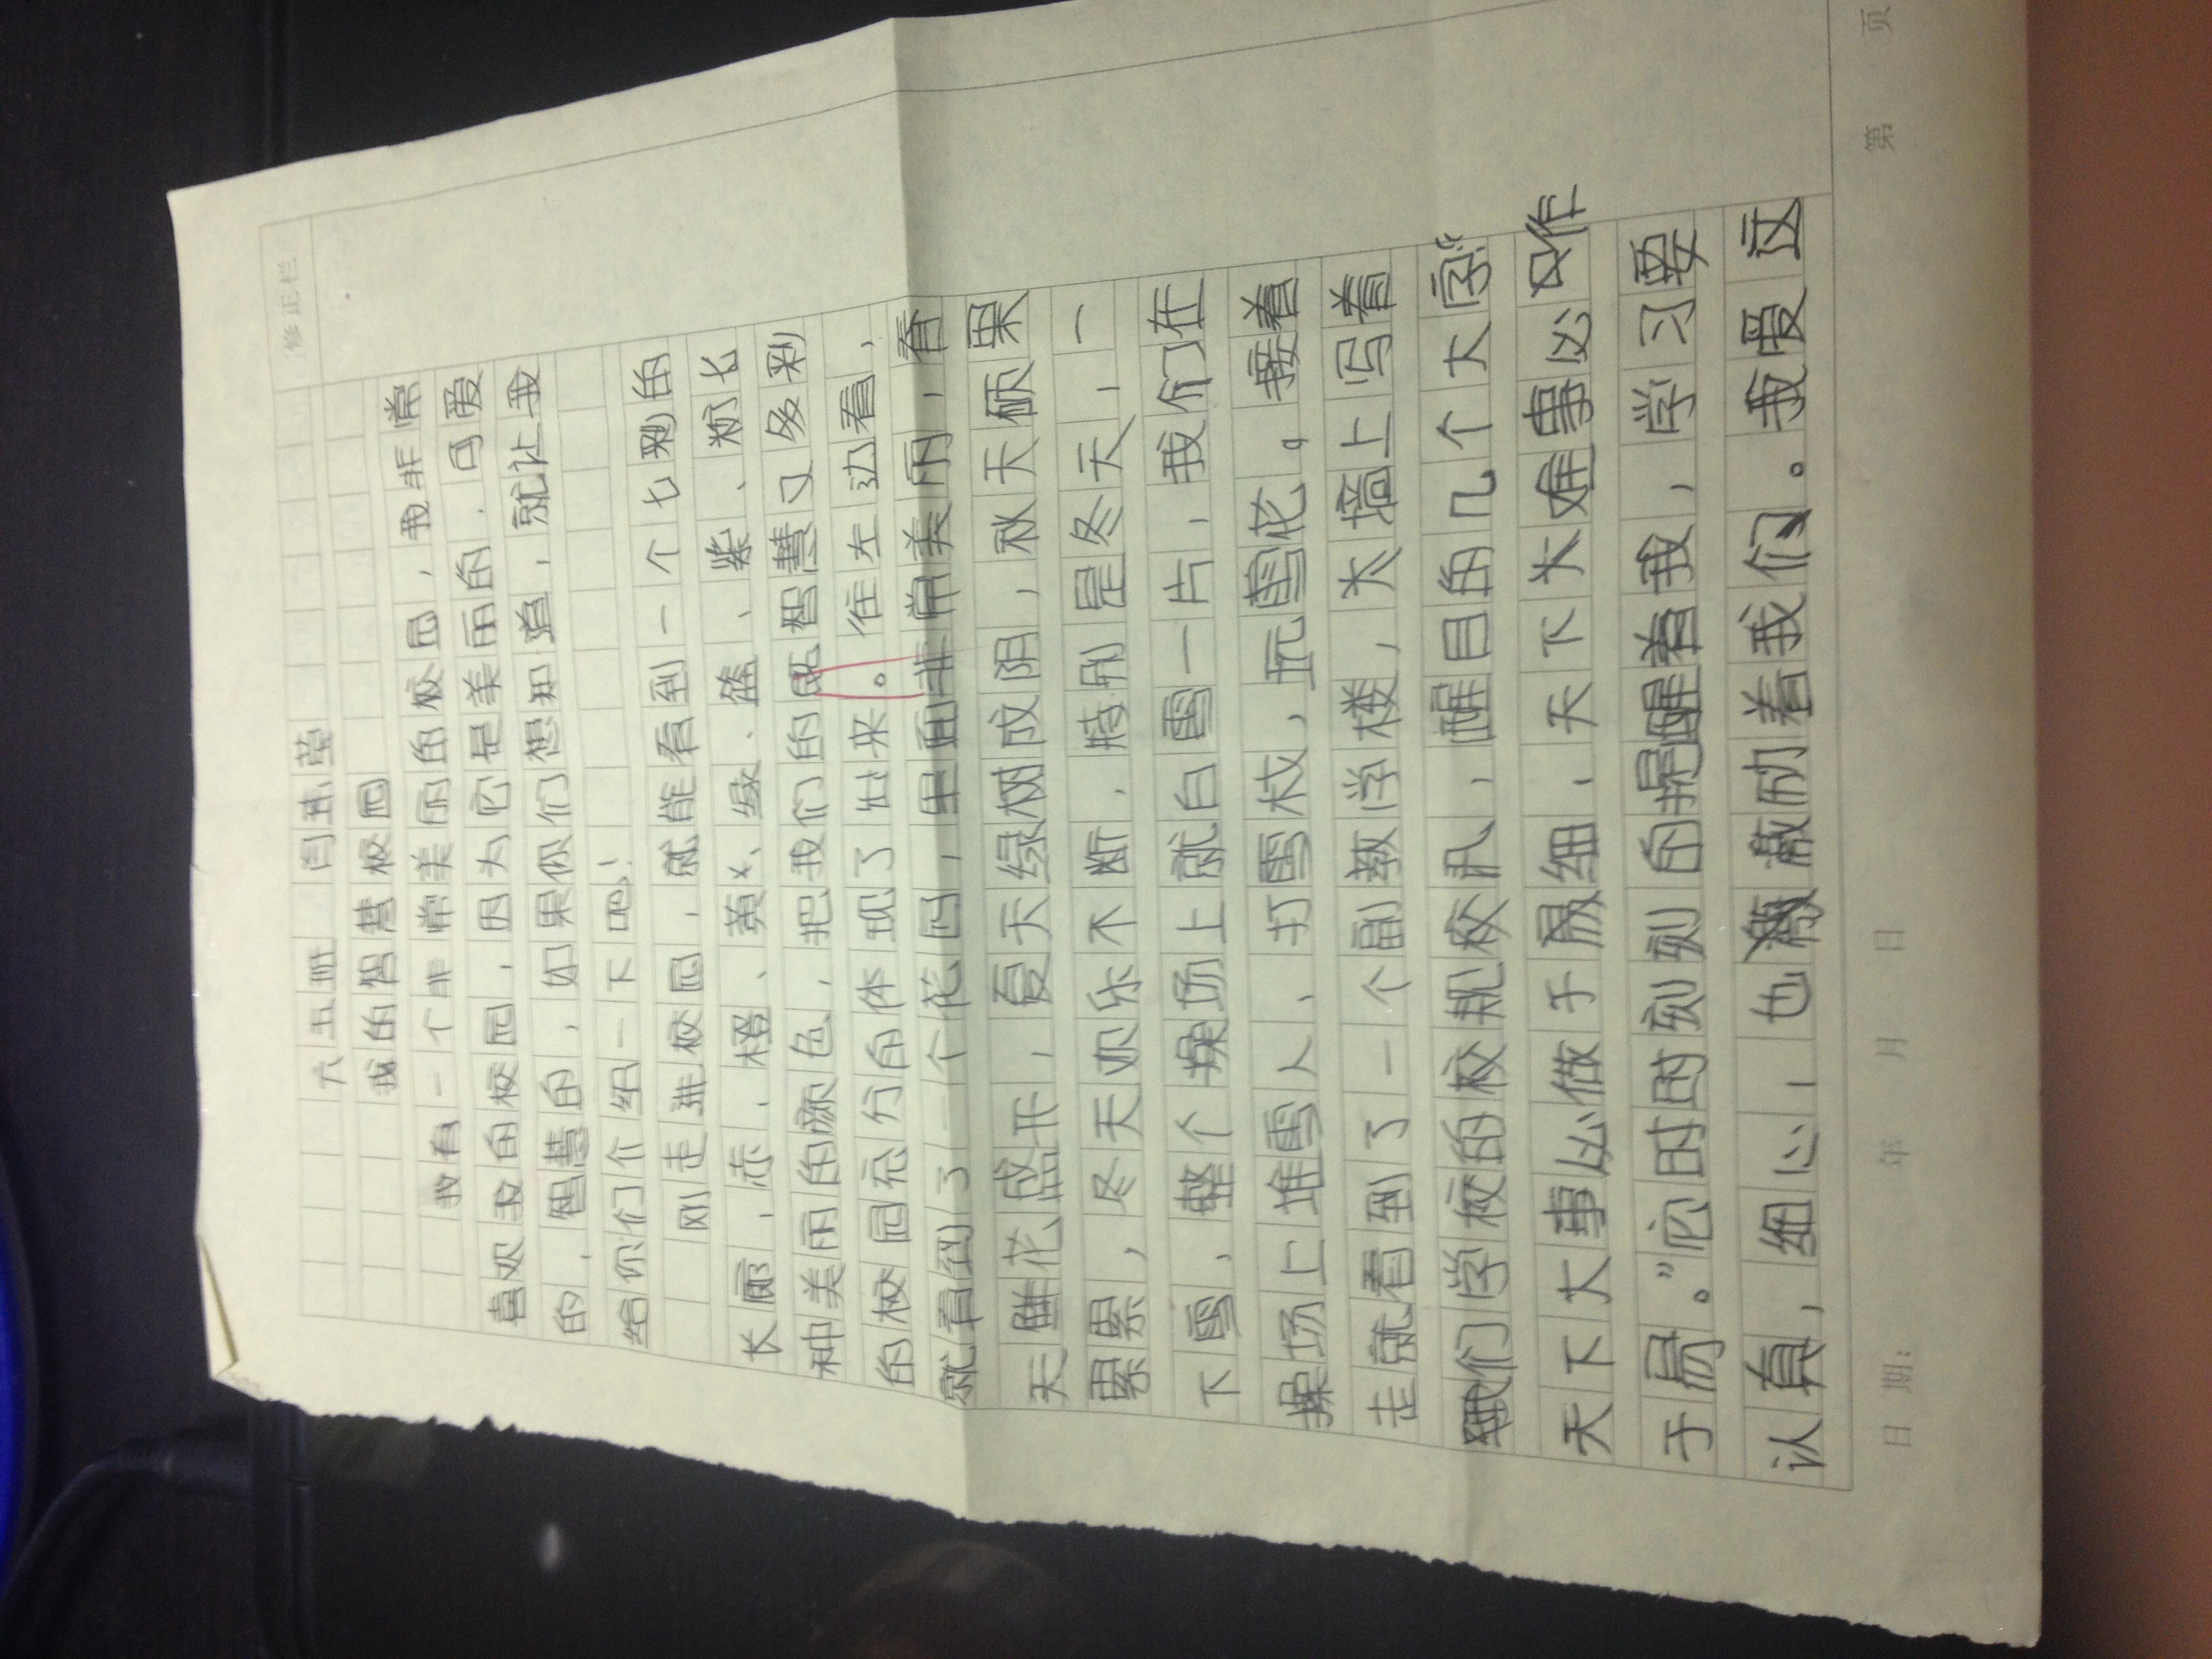 修正栏
六五班 闫
我的智慧校园
我有一个非常美丽的校园，我非常
喜欢我的校园，因为它是美丽的、可爱
的、智慧的，如果你们想知道，就让我
给你们介绍一下吧！
刚走进校园，就能看到一个七彩的
长廊，赤、橙、黄、绿、蓝、紫、粉七
种美丽的颜色，把我们的既智慧又多彩
的校园充分的体现了出来。往左边看，
就看到了一个花园，里面非常美丽，春
天鲜花盛开，夏天绿树成阴，秋天硕果
累累，冬天欢乐不断，特别是冬天，一
下雪，整个操场上就白雪一片，我们在
操场上堆雪人、打雪杖，玩雪花。接着
走就看到了一个副教学楼，大墙上写着
我们学校的校规校训，醒目的几个大字“
天下大事必做于细，天下大难事必作
于易。”它时时刻刻的提醒着我，学习要
认真，细心，也激励着我们。我爱这
日期： 年 月 日 第 页